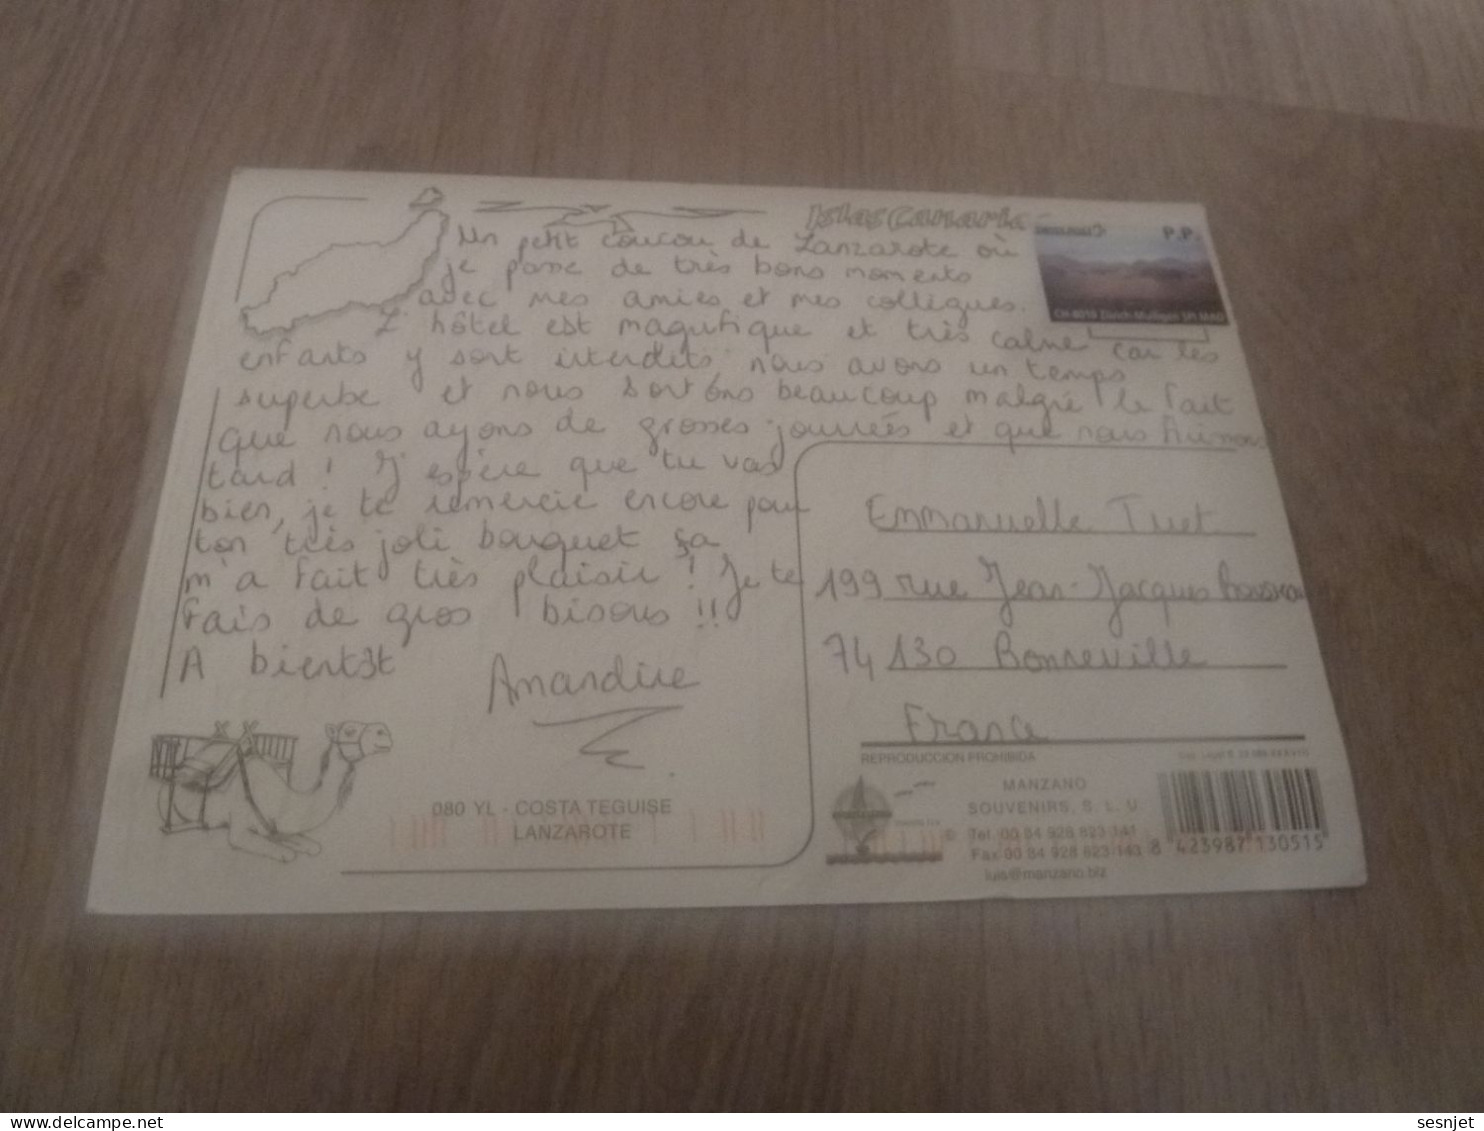 Islas Canaria
P.P.
CH-8010 Zürich-Mülligen SPI MAD
Un petit coucou de Lanzarote où
je passe de très bons moments
avec mes amies et mes collègues.
L'hôtel est magnifique et très calme car les
enfants y sont interdits, nous avons un temps
superbe et nous sortons beaucoup malgré le fait
que nous ayons de grosses journées et que nous
tard ! J'espère que tu vas
bien, je te remercie encore pour
ton très joli bouquet ça
m'a fait très plaisir ! Je te
fais de gros bisous !!
A bientôt
Amandine
Emmanuelle Tuet
199 rue Jean-Jacques Rousseau
74 130 Bonneville
France
080 YL - COSTA TEGUISE
LANZAROTE
REPRODUCCION PROHIBIDA
MANZANO
SOUVENIRS, S. L. U.
© Tel. 00 34 928 823 141
Fax 00 34 928 823 143
luis@manzano.biz
8 423987 130515
sesnjet